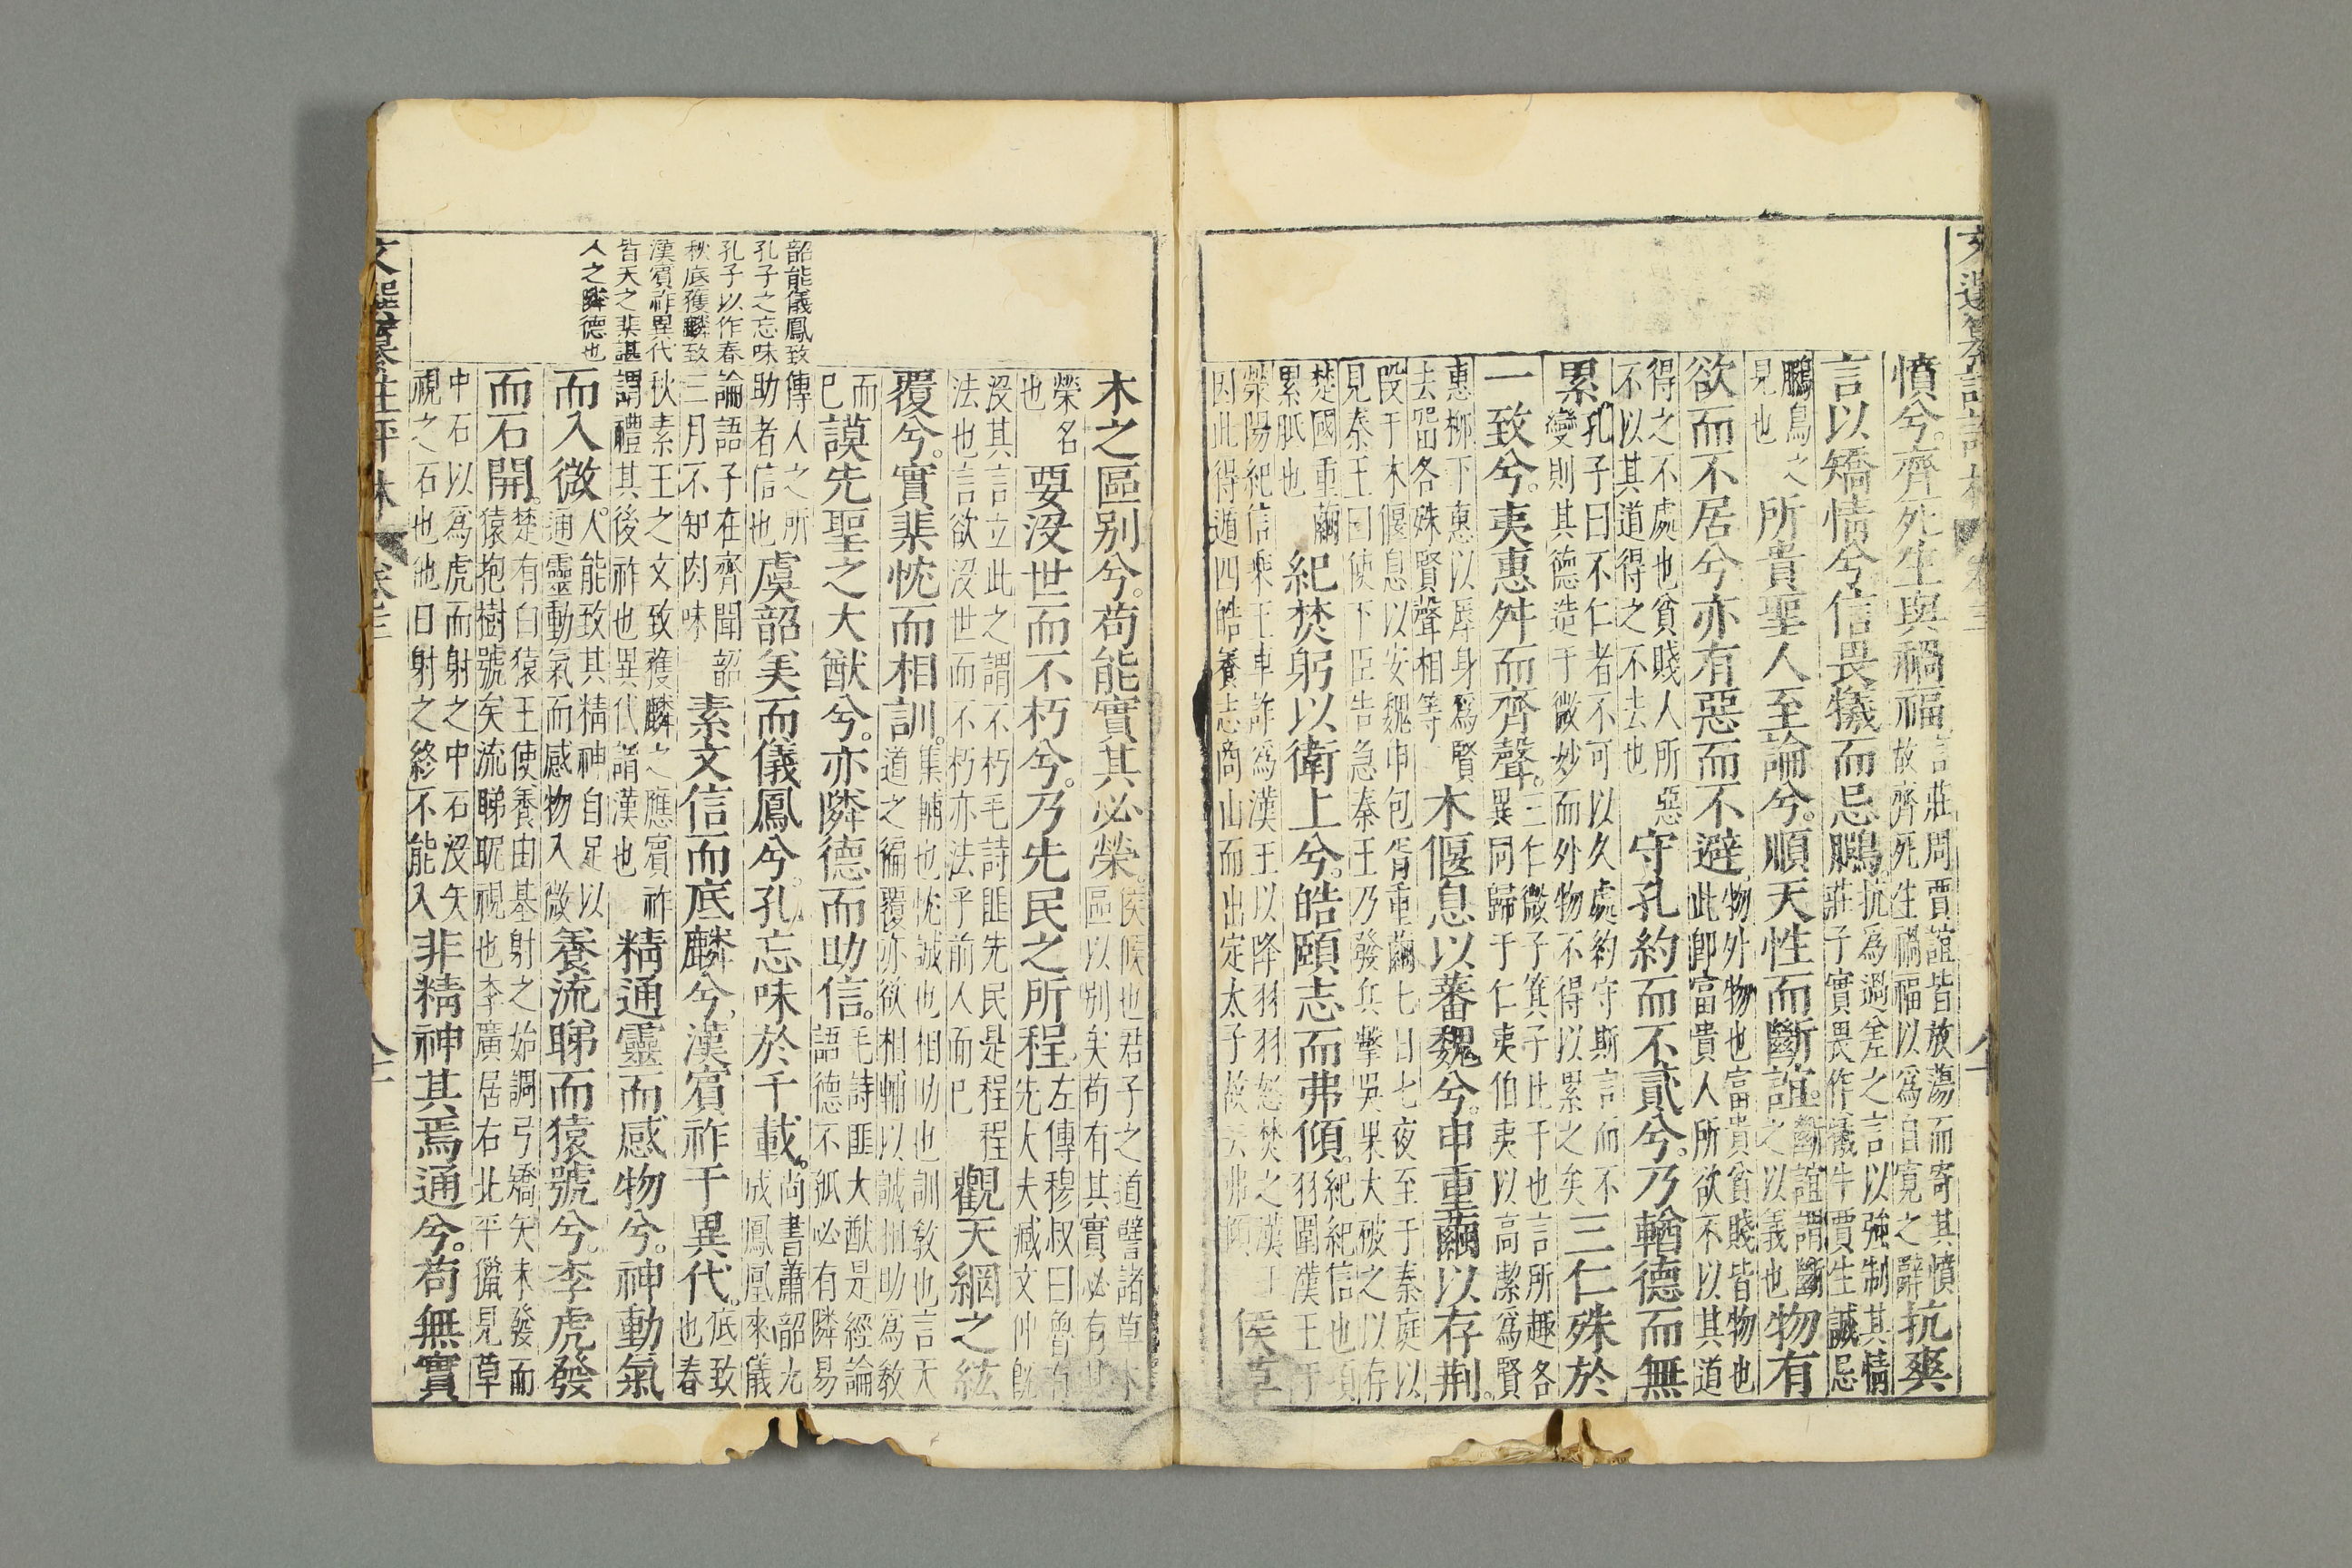 憤兮。齊死生與禍福言莊周賈誼皆放蕩而寄其憤故齊死生禍福以為自寬之辭抗爽
言以矯情兮信畏犧而忌鵩。抗為過差之言以強制其情莊子實畏作犧牛賈生誠忌
鵩鳥之見也所貴聖人至論兮。順天性而斷誼。斷誼謂斷之以義也物有
欲而不居兮亦有惡而不避物外物也富貴貧賤皆物也此卽富貴人所欲不以其道
得之不處也貧賤人所惡不以其道得之不去也守孔約而不貳兮。乃輶德而無
累。孔子曰不仁者不可以久處約守斯言而不變則其德造于微妙而外物不得以累之矣三仁殊於
一致兮。夷惠舛而齊聲。三仁微子箕子比干也言所趣各異同歸于仁夷伯夷以高潔爲賢
惠柳下惠以辱身爲賢去留各殊賢聲相等木偃息以蕃魏兮。申重繭以存荆。
段干木偃息以安魏申包胥重繭七日七夜至于秦庭以見秦王曰使下臣告急秦王乃發兵擊吳果大破之以存
楚國重繭累胝也紀焚躬以衛上兮。皓頤志而弗傾。紀紀信也項羽圍漢王于
滎陽紀信乘王車詐爲漢王以降羽羽怒焚之漢王因此得遁四皓養志商山而出定太子故云弗傾侯草
木之區别兮。苟能實其必榮。侯候也君子之道譬諸草木區以别矣苟有其實必有其
榮名也要没世而不朽兮。乃先民之所程。左傳穆叔曰魯有先大夫臧文仲旣
没其言立此之謂不朽毛詩匪先民是程程法也言欲没世而不朽亦法乎前人而已觀天網之紘
覆兮。實棐忱而相訓。棐輔也忱誠也相助也訓敎也言天道之徧覆亦欲相輔以誠相助爲敎
而已謨先聖之大猷兮。亦隣德而助信。毛詩匪大猷是經論語德不孤必有隣易
傳人之所助者信也虞韶美而儀鳳兮。孔忘味於千載。尚書蕭韶九成鳳凰來儀
論語子在齊聞韶三月不知肉味素文信而底麟兮漢賓祚于異代。底致也春
秋素王之文致獲麟之應賓祚謂禮其後祚也異代謂漢也精通靈而感物兮。神動氣
而入微。人能致其精神自足以通靈動氣而感物入微養流睇而猿號兮。李虎發
而石開。楚有白猿王使養由基射之始調弓矯矢未發而猿抱樹號矣流睇眤視也李廣居右北平獵見草
中石以爲虎而射之中石没矢視之石也他日射之終不能入非精神其焉通兮。苟無實
韶能儀鳳致
孔子之忘味
孔子以作春
秋底獲麟致
漢賓祚異代
皆天之棐諶
人之隣德也